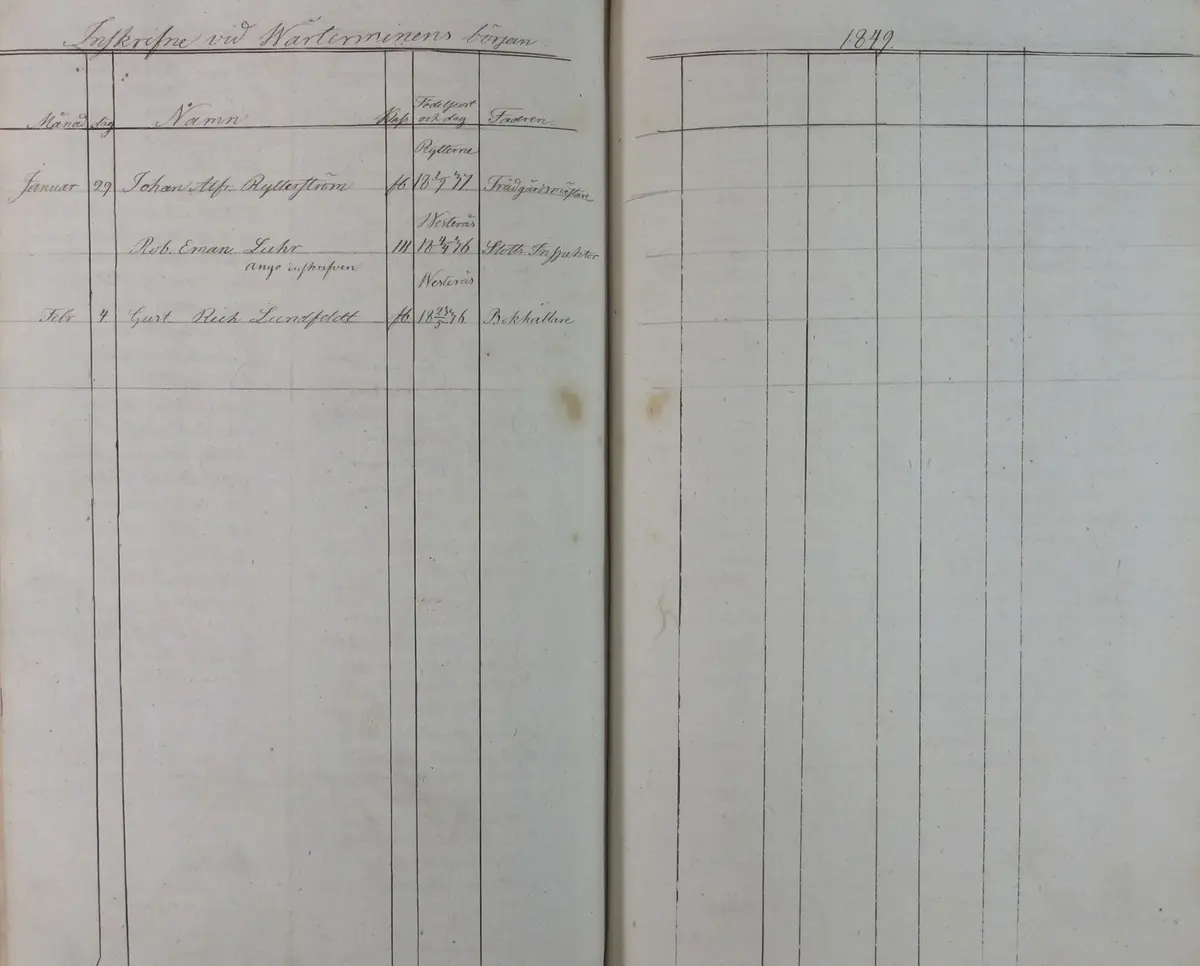 Inskrifne vid Wårterminens början 1849
Månad dag Namn Klass Födelseort och dag Fadren
Rytterne
Januar 29 Johan Alfr. Rytterström 18 37 Trädgårdsmästare
Westerås
Rob. Eman. Luhr III 18 36 Slotts Inspektor
inskrifven
Westerås
Febr 4 Gust. Rich Lundfeldt 18 23/5 36 Bokhållare